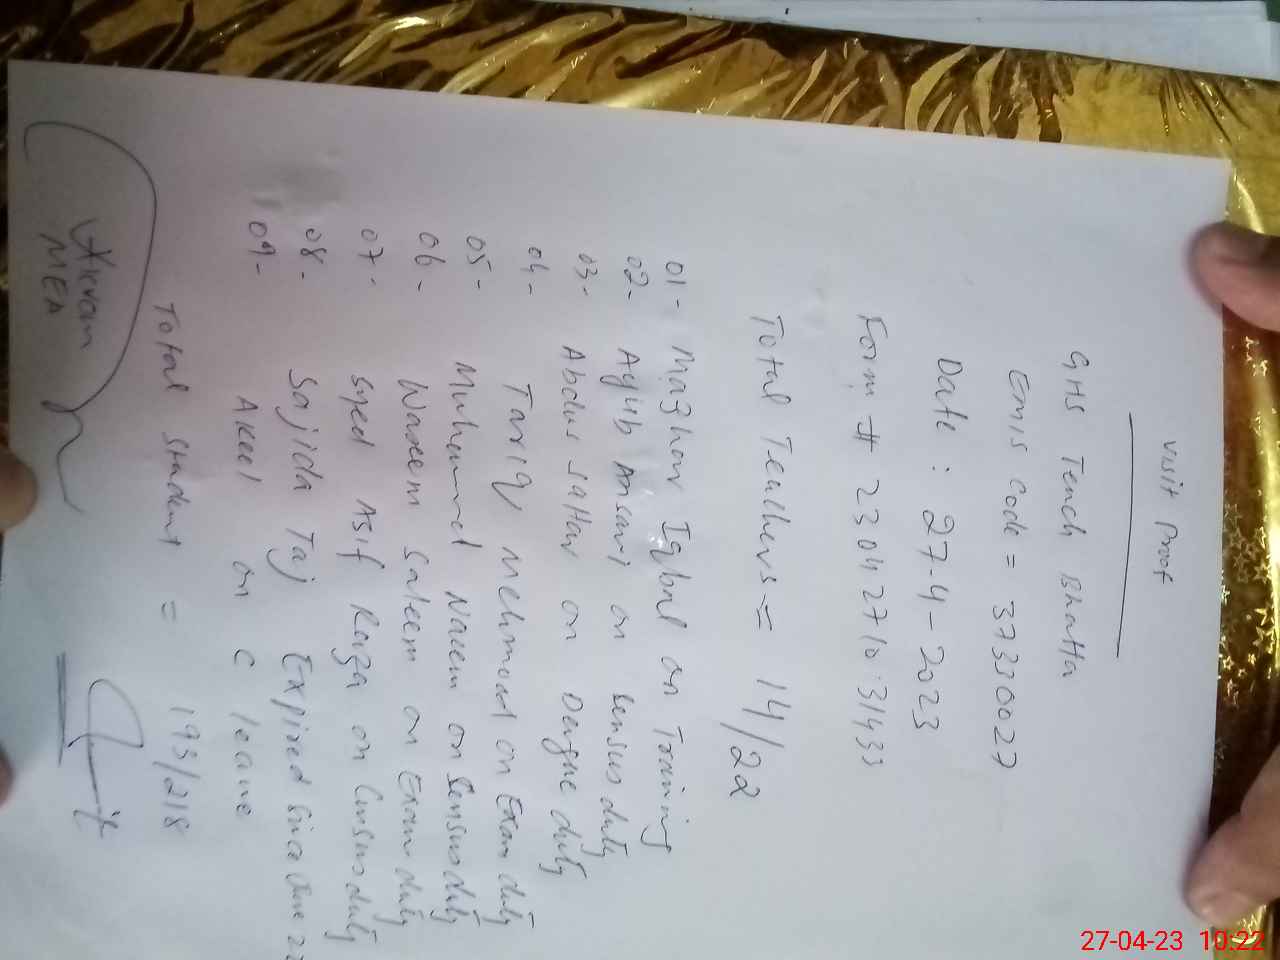 Visit Proof
GHS Tench Bhatta
Emis Code = 37330027
Date : 27-4-2023
Form # 23042710.31433
Total Teachers = 14/22
01- Mazhar Iqbal on Training
02- Ayub Ansari on Sensus duty
03- Abdus Sattar on Dengue duty
04- Tariq Mehmood on Exam duty
05- Muhammed Naeem on Sensus duty
06- Waseem Saleem on Exam duty
07- Syed Asif Raza on Census duty
08- Sajida Taj Expired since June 22
09- Akeel on C leave
Total Student = 193/218
Akram
MEA
27-04-23 10:22